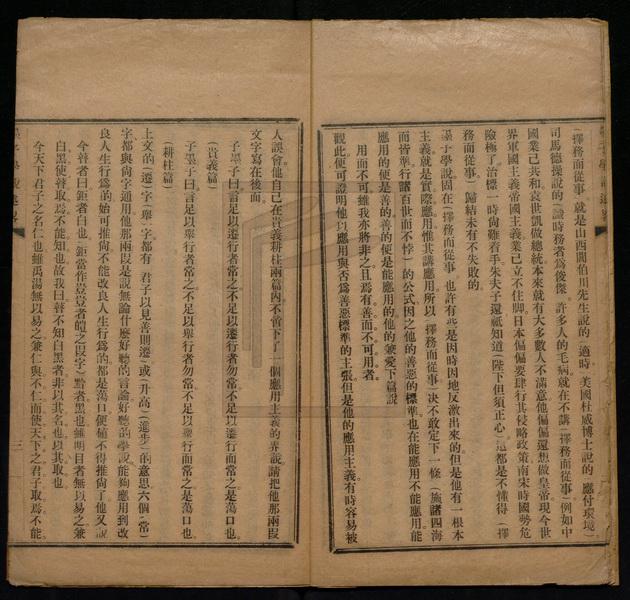 (擇務而從事)就是山西閻伯川先生說的(適時)美國杜威博士說的(應付環境)
司馬德操說的(識時務者為俊傑)許多人的毛病就在不講(擇務而從事)例如中
國業已共和袁世凱做總統本來就有大多數人不滿意他偏偏還想做皇帝現今世
界軍國主義帝國主義業已立不住脚日本偏偏要肆行其侵略政策南宋時國勢危
險極了治標一時尙難着手朱夫子還祇知道(陛下但須正心)這都是不懂得(擇
務而從事)歸結未有不失敗的
墨子學說固在(擇務而從事)也許有些是因時因地反激出來的但是他有一根本
主義就是實際應用惟其講應用所以(擇務而從事)决不敢定下一條(施諸四海
而皆準行諸百世而不悖)的公式因之他的善惡的標準也在能應用不能應用能
應用的便是善的善的便是能應用的他的兼愛下篇說
用而不可雖我亦將非之且焉有善而不可用者
觀此便可證明他以應用與否爲善惡標準的主張但是他的應用主義有時容易被
人誤會他自己在貴義耕柱兩篇內不啻下了一個應用主義的界說請把他那兩段
文字寫在後面
子墨子曰言足以遷行者常之不足以遷行者勿常不足以遷行而常之是蕩口也
(貴義篇)
子墨子曰言足以舉行者常之不足以舉行者勿常不足以舉行而常之是蕩口也
(耕柱篇)
上文的(遷)字(舉)字都有(君子以見善則遷)或(升高)(進步)的意思六個(常)
字都與尙字通用他那兩段是說無論什麽好聽的言論好聽的學說能夠應用到改
良人生行爲的始可推尙不能改良人生行爲的都是蕩口便值不得推尙了他又說
今瞽者曰鉅者白也(鉅當作豈豈者皚之叚字)黔者黑也雖明目者無以易之兼
白黑使瞽取焉不能知也故我曰瞽不知白黑者非以其名也以其取也
今天下君子之名仁也雖禹湯無以易之兼仁與不仁而使天下之君子取焉不能
三